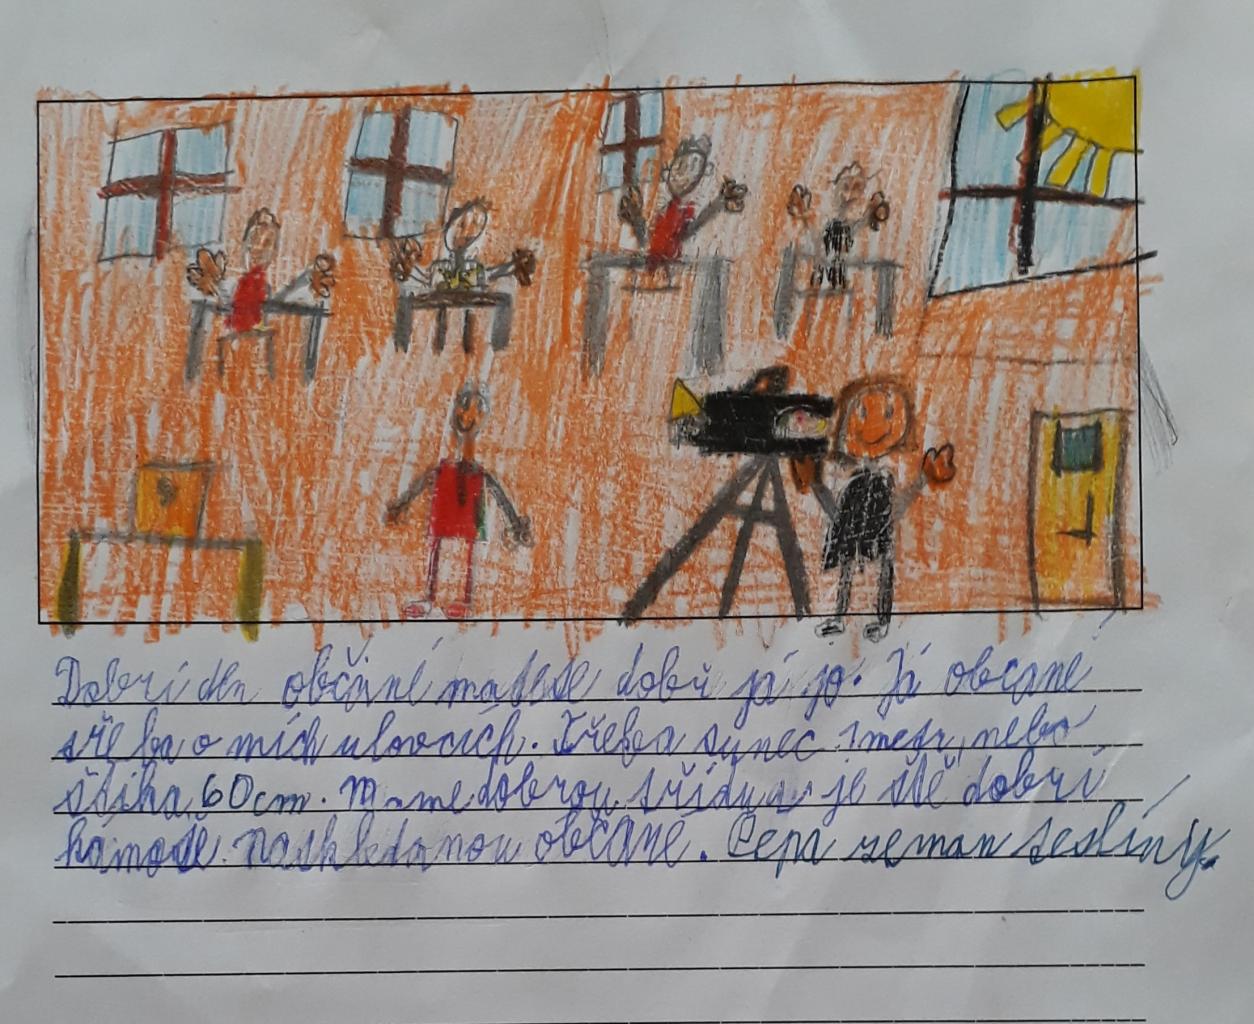 Dobrí den občané mate se dobř já jo. Já občané
třeba o mích ulovcích. Třeba sumec 1metr, nebo
štika 60cm. Mame dobrou třídu a je ště dobrí
kámoše. naskledanou občané. Pepa zeman seslíny.